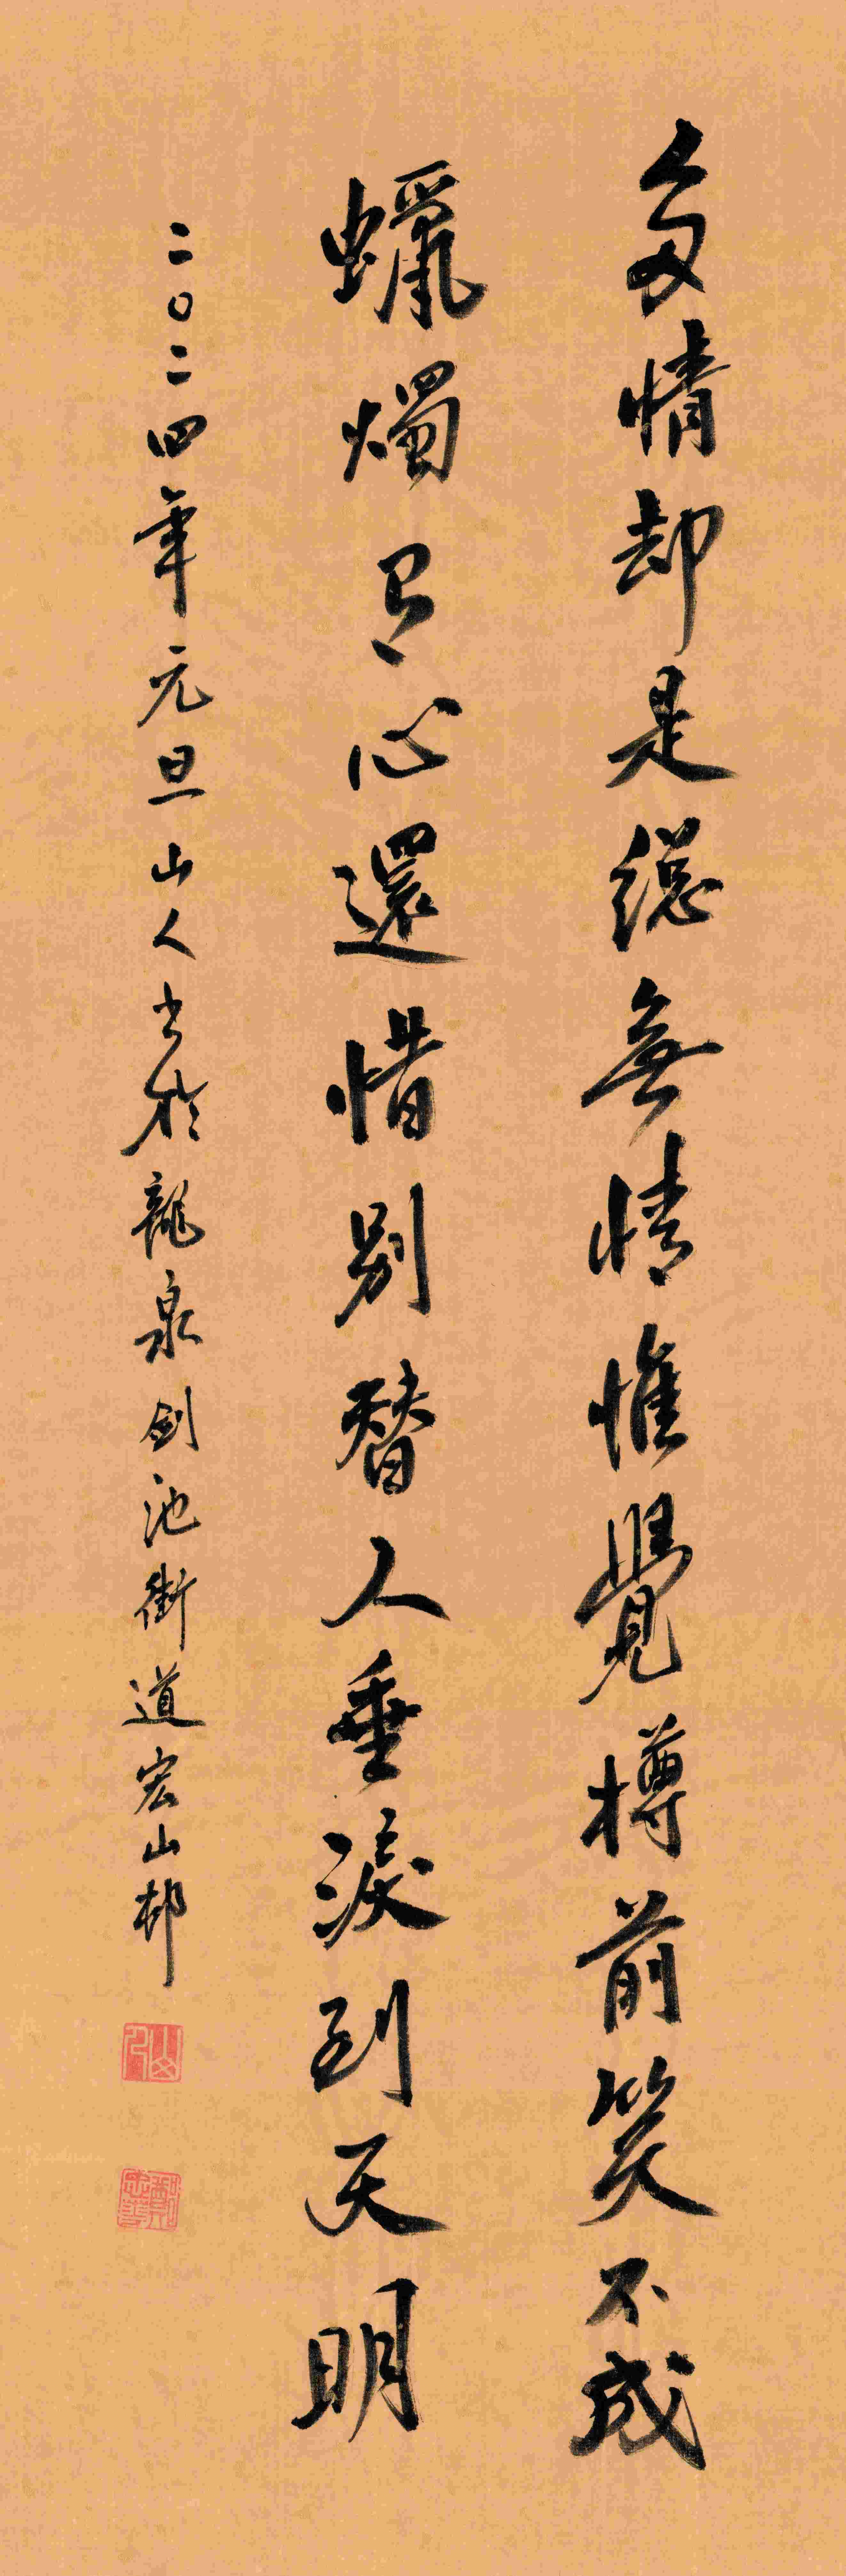 多情却是總無情惟覺樽前笑不成
蠟燭有心還惜別替人垂淚到天明
二〇二四年元旦山人书於龍泉剑池街道宏山邨